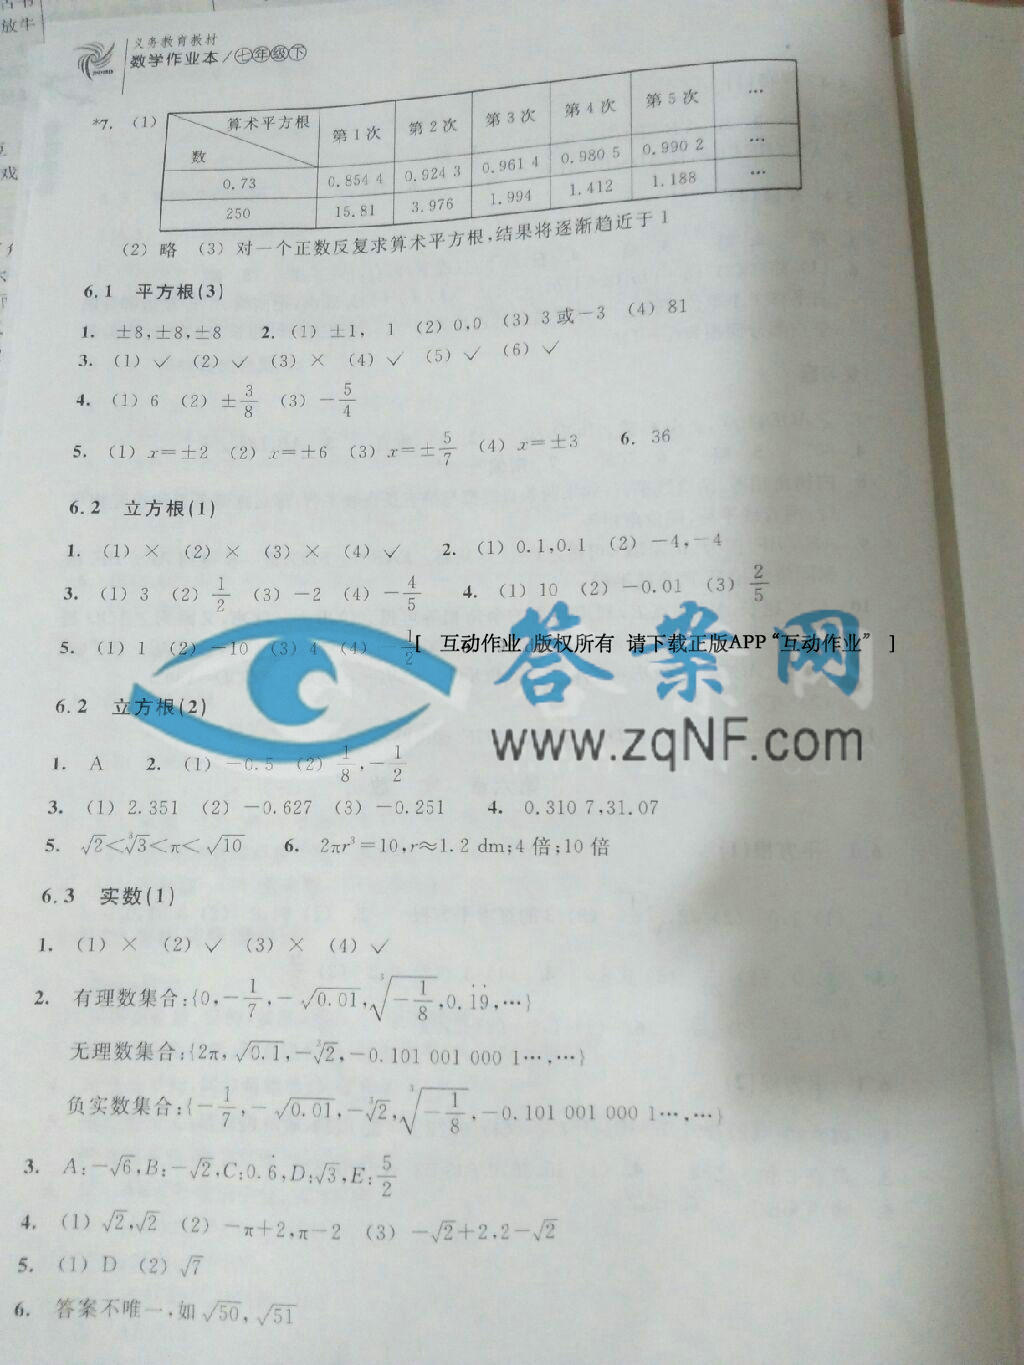 古书
放牛
戏
义务教育教材
数学作业本/七年级下
*7. (1) 算术平方根 数 第1次 第2次 第3次 第4次 第5次 …
0.73 0.854 4 0.924 3 0.961 4 0.980 5 0.990 2 …
250 15.81 3.976 1.994 1.412 1.188 …
(2) 略 (3) 对一个正数反复求算术平方根,结果将逐渐趋近于1
6.1 平方根(3)
1. ±8,±8,±8 2. (1) ±1, 1 (2) 0,0 (3) 3或-3 (4) 81
3. (1) √ (2) √ (3) × (4) √ (5) √ (6) √
4. (1) 6 (2) ±3/8 (3) -5/4
5. (1) x=±2 (2) x=±6 (3) x=±5/7 (4) x=±3 6. 36
6.2 立方根(1)
1. (1) × (2) × (3) × (4) √ 2. (1) 0.1,0.1 (2) -4,-4
3. (1) 3 (2) 1/2 (3) -2 (4) -4/5 4. (1) 10 (2) -0.01 (3) 2/5
5. (1) 1 (2) -10 (3) 4 (4) -1/2
[ 互动作业 版权所有 请下载正版APP“互动作业” ]
答案网
www.zqNF.com
6.2 立方根(2)
1. A 2. (1) -0.5 (2) 1/8,-1/2
3. (1) 2.351 (2) -0.627 (3) -0.251 4. 0.310 7,31.07
5. √2<∛3<π<√10 6. 2πr³=10,r≈1.2 dm;4倍;10倍
6.3 实数(1)
1. (1) × (2) √ (3) × (4) √
2. 有理数集合:{0,-1/7,-√0.01,∛(-1/8),0.1̇9̇,…}
无理数集合:{2π,√0.1,-∛2,-0.101 001 000 1…,…}
负实数集合:{-1/7,-√0.01,-∛2,∛(-1/8),-0.101 001 000 1…,…}
3. A:-√6,B:-√2,C:0.6̇,D:√3,E:5/2
4. (1) √2,√2 (2) -π+2,π-2 (3) -√2+2,2-√2
5. (1) D (2) √7
6. 答案不唯一,如√50,√51